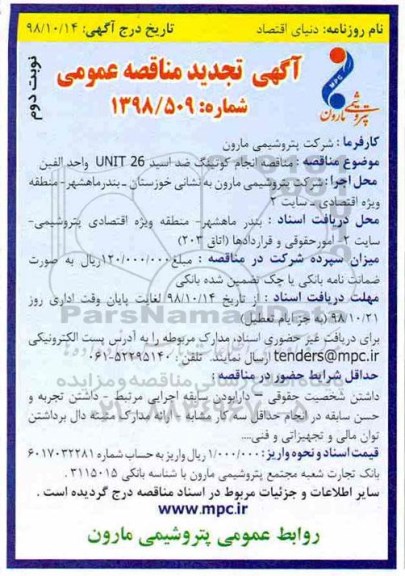 نام روزنامه: دنیای اقتصاد
تاریخ درج آگهی: ۹۸/۱۰/۱۴
آگهی تجدید مناقصه عمومی
شماره: ۱۳۹۸/۵۰۹
نوبت دوم
MPC
پتروشیمی مارون
کارفرما: شرکت پتروشیمی مارون
موضوع مناقصه: مناقصه انجام کوتینگ ضد اسید UNIT 26 واحد الفین
محل اجرا: شرکت پتروشیمی مارون به نشانی خوزستان - بندرماهشهر - منطقه
ویژه اقتصادی - سایت ۲
محل دریافت اسناد: بندر ماهشهر- منطقه ویژه اقتصادی پتروشیمی-
سایت ۲- امورحقوقی و قراردادها (اتاق ۲۰۳)
میزان سپرده شرکت در مناقصه: مبلغ ۱۲۰/۰۰۰/۰۰۰ ریال به صورت
ضمانت نامه بانکی یا چک تضمین شده بانکی
مهلت دریافت اسناد: از تاریخ ۹۸/۱۰/۱۴ لغایت پایان وقت اداری روز
۹۸/۱۰/۲۱ (به جز ایام تعطیل)
برای دریافت غیر حضوری اسناد، مدارک مربوطه را به آدرس پست الکترونیکی
tenders@mpc.ir ارسال نمایند. تلفن: ۵۲۲۹۵۱۴۰-۰۶۱
حداقل شرایط حضور در مناقصه:
داشتن شخصیت حقوقی - دارابودن سابقه اجرایی مرتبط - داشتن تجربه و
حسن سابقه در انجام حداقل سه کار مشابه - ارائه مدارک مثبته دال برداشتن
توان مالی و تجهیزاتی و فنی....
قیمت اسناد و نحوه واریز: ۱/۰۰۰/۰۰۰ ریال واریز به حساب شماره ۶۰۱۷۰۳۲۲۸۱
بانک تجارت شعبه مجتمع پتروشیمی مارون با شناسه بانکی ۳۱۱۵۰۱۵.
سایر اطلاعات و جزئیات مربوط در اسناد مناقصه درج گردیده است.
www.mpc.ir
روابط عمومی پتروشیمی مارون